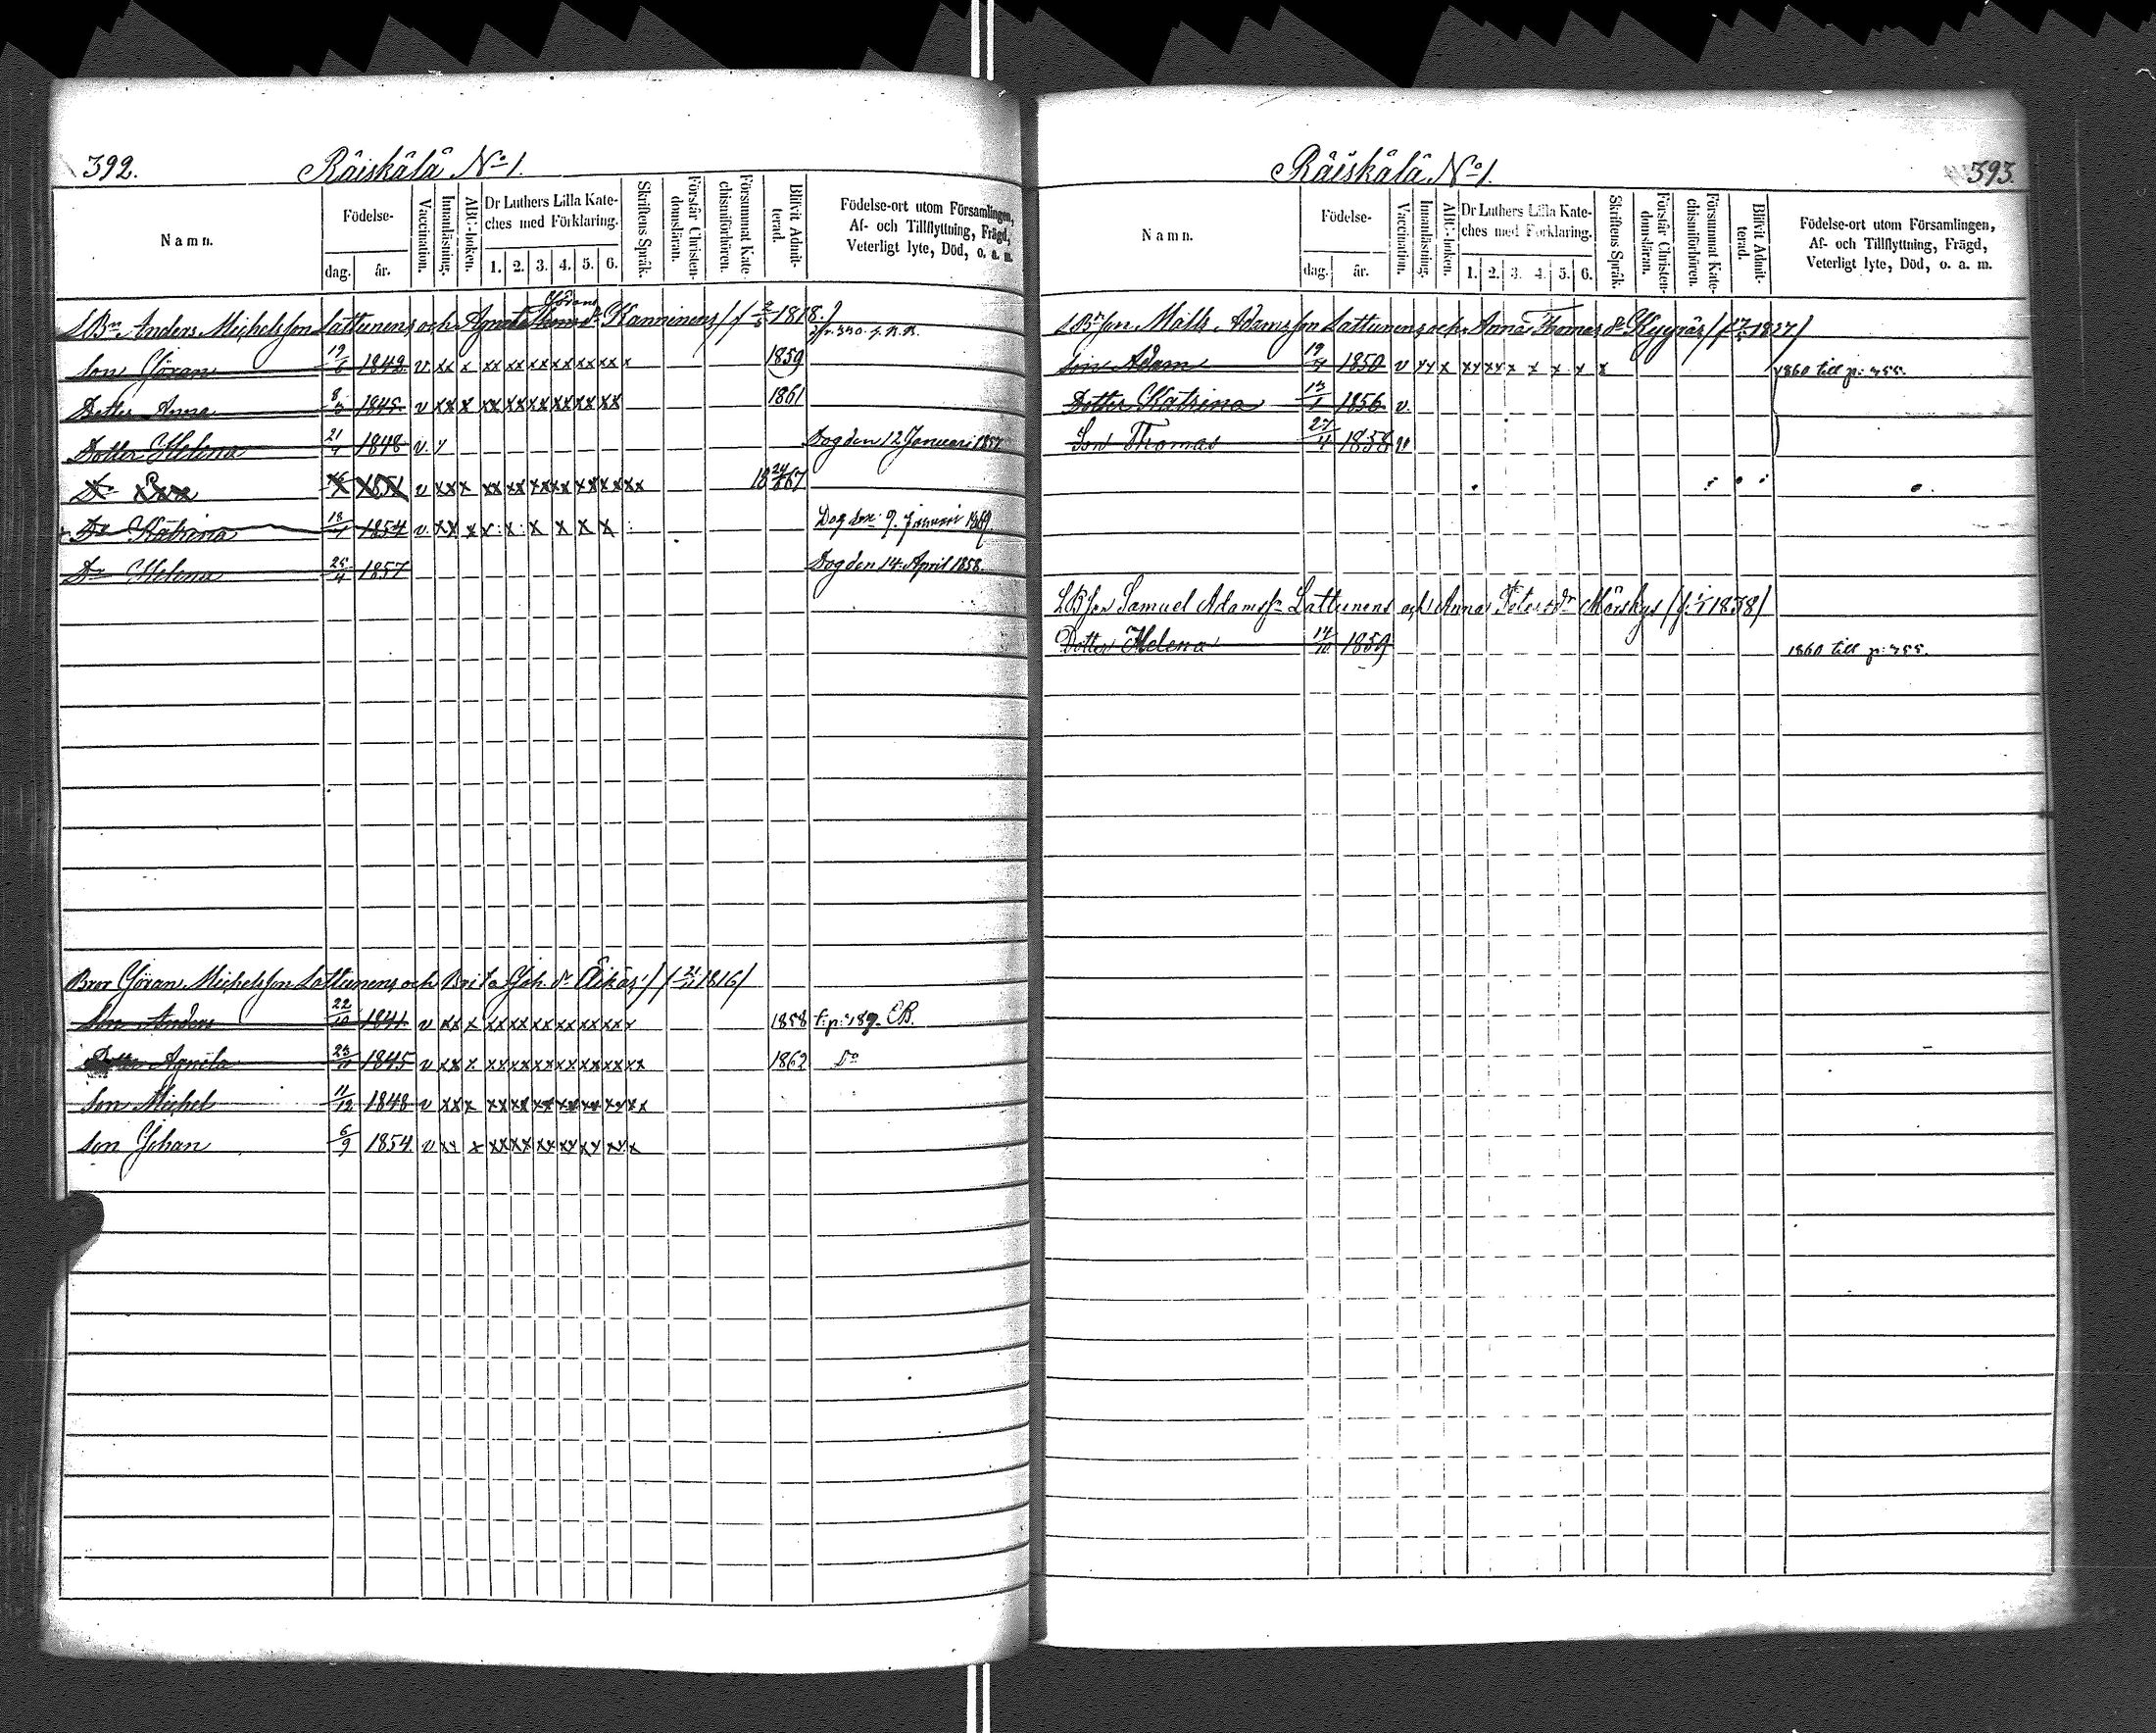 392.
Räiskälä No 1.
Namn.
Födelse-
dag.
år.
Vaccination.
Innanläsning.
ABC-boken.
Dr Luthers Lilla Kate-
ches med Förklaring.
1. 2. 3. 4. 5. 6.
Skriftens Språk.
Förstår Christen-
domsläran.
Försummat Kate-
chismiförhören.
Blifvit Admit-
terad.
Födelse-ort utom Församlingen,
Af- och Tillflyttning, Frägd,
Veterligt lyte, Död, o. a. m.
Görans
Anders Michelsson Lattunens och Agneta dr Ranninens 1818.
Son Göran 19/6 1842 v xx x xx xx xx xx xx xx x 1859
Dotter Anna 8/3 1845 v xx x xx xx xx xx xx xx 1861
Dotter Helena 21/4 1848 v. Dog den 12 Januari 1857
Do Eva 1851 v xx x xx xx xx xx xx xx xx 18 24/6 67
Do Katrina 18/1 1854 v. xx x x x x x x x Dog den 9. Januari 1869.
Do Helena 25/4 1857 Dog den 14. April 1858.
Bror Göran Michelsson Lattunens och Brita Joh. dr Äikäs 1816
Son Anders 22/10 1841 v xx x xx xx xx xx xx xx x 1858 t. p: 189. CB.
Dotter Agneta 23/11 1845 v xx x xx xx xx xx xx xx xx 1862 Do
Son Michel 11/12 1848 v xx x xx xx xx xx xx xx xx
Son Johan 6/9 1854. v xx x xx xx xx xx xx xx x
Räiskälä No 1.
393.
Namn.
Födelse-
dag.
år.
Vaccination.
Innanläsning.
ABC-boken.
Dr Luthers Lilla Kate-
ches med Förklaring.
1. 2. 3. 4. 5. 6.
Skriftens Språk.
Förstår Christen-
domsläran.
Försummat Kate-
chismiförhören.
Blifvit Admit-
terad.
Födelse-ort utom Församlingen,
Af- och Tillflyttning, Frägd,
Veterligt lyte, Död, o. a. m.
Matts Adamsson Lattunens och Anna Thomas dr
Son Adam 19/4 1850 v xx x xx xx x x x x x 1860 till p: 455.
Dotter Katrina 13/1 1856 v.
Son Thomas 27/4 1858 v
Samuel Adamss Lattunens och Anna Peters dr
Dotter Helena 14/10 1859 1860 till p: 455.